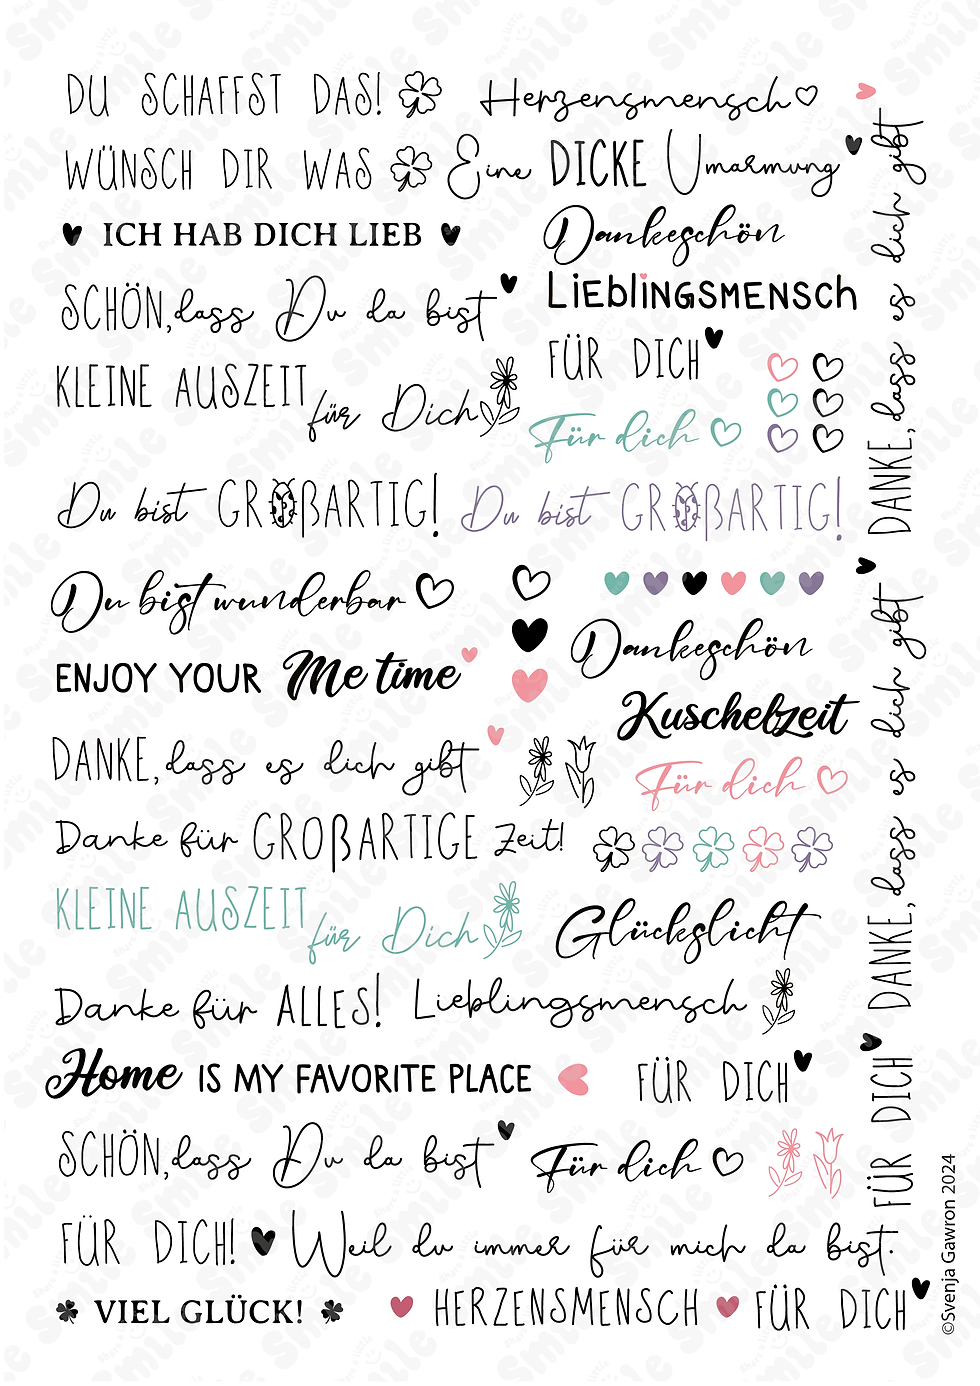 DU SCHAFFST DAS!
Herzensmensch
WÜNSCH DIR WAS
Eine DICKE Umarmung
ICH HAB DICH LIEB
Dankeschön
SCHÖN, dass Du da bist
LiEBliNGSMENSch
FÜR DICH
KLEINE AUSZEIT
für Dich
Für dich
Du bist GROßARTIG!
Du bist GROßARTIG!
DANKE, dass es dich gibt
Du bist wunderbar
Dankeschön
ENJOY YOUR Me time
Kuschelzeit
DANKE, dass es dich gibt
Für dich
Danke für GROßARTIGE Zeit!
KLEINE AUSZEIT
für Dich
Glückslicht
DANKE, dass es dich gibt
Danke für ALLES!
Lieblingsmensch
Home IS MY FAVORITE PLACE
FÜR DICH
SCHÖN, dass Du da bist
Für dich
FÜR DICH
FÜR DICH!
Weil du immer für mich da bist.
VIEL GLÜCK!
HERZENSMENSCH
FÜR DICH
©Svenja Gawron 2024
Smile